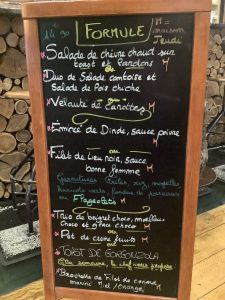 14.90 FORMULE M=
maison
Jeudi
Salade de chèvre chaud sur
toast et Lardons
ou
Duo de Salade comtoise et
Salade de Pois chiche
ou
Velouté de Carottes M
Emincé de Dinde, sauce poivre
M
ou
Filet de Lieu noir, sauce
bonne femme M
Garnitures: frites, riz,
haricots verts,
ou
Trio de beignet choco, moelleux
Choco et glace choco M
ou
Pot de crème fruits M
ou
TOAST DE GORGONZOLA
Cette semaine, le chef vous propose
Brochette de Filet de canard
mariné Miel/Orange M